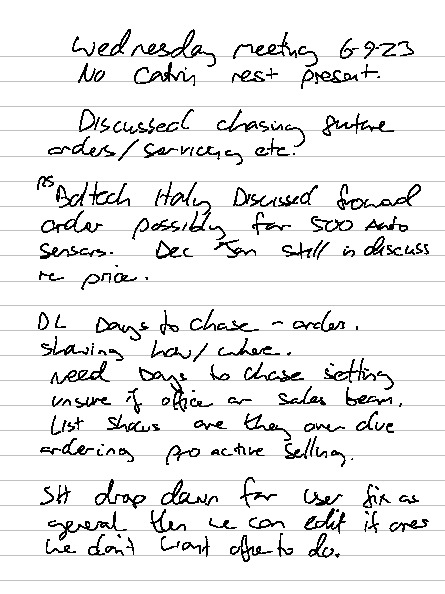 Wednesday meeting 6-9-23
No Catrin rest present.
Discussed chasing future
orders/servicing etc.
RS Boltech Italy Discussed forward
order possibly for 500 Auto
Sensors. Dec Jan still in discuss
re price.
DL Days to chase - order.
showing how/where.
Need Days to chase setting
unsure if office or sales team.
List shows are they over due
ordering pro active selling.
SH drop down for user fix as
general then we can edit if ones
we don't want office to do.